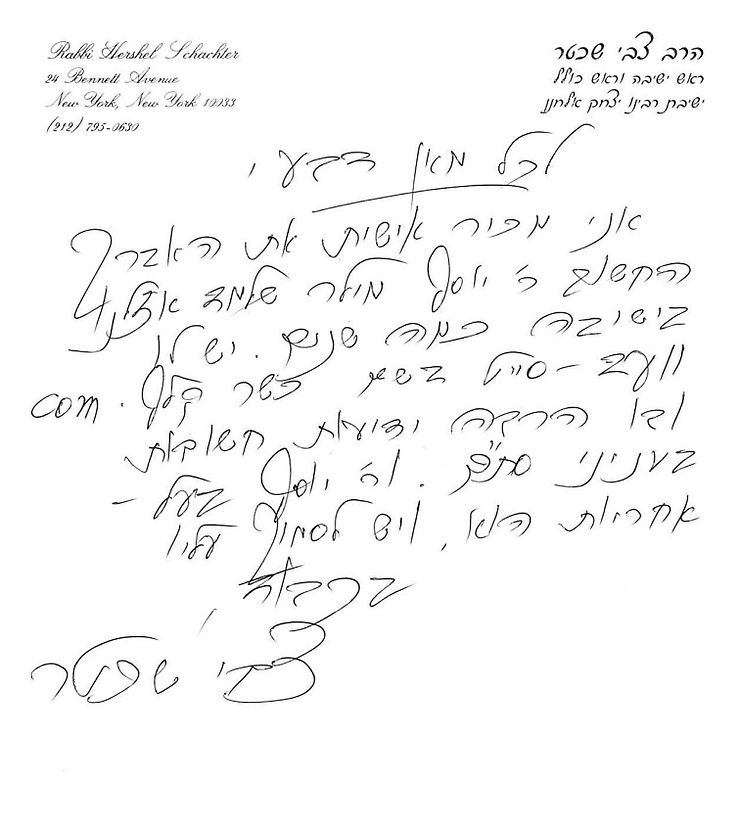 Rabbi Hershel Schachter
24 Bennett Avenue
New York, New York 10033
(212) 795-0630
הרב צבי שכטר
ראש ישיבה וראש כולל
ישיבת רבינו יצחק אלחנן
לכל מאן דבעי,
אני מכיר אישית את האברך
החשוב ה' יוסף מילר שלמד אצלנו
בישיבה כמה שנים. יש לו
וועב-סייט בשם כשר קלף. com
ובו הרבה ידיעות חשובות
בעניני סת"ם. וה' יוסף בעל-
אחריות הוא, ויש לסמוך עליו
בכבוד,
צבי שכטר